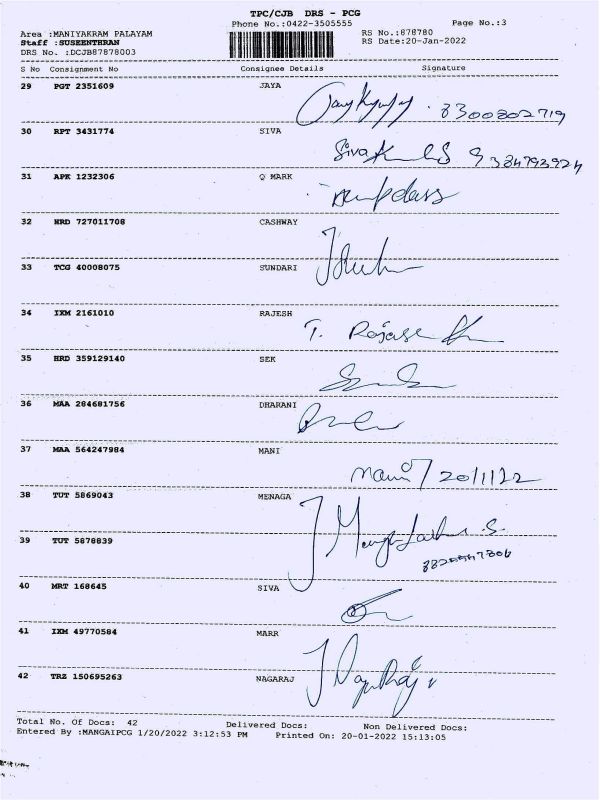 TPC/CJB DRS - PCG
Phone No.:0422-3505555
Page No.:3
Area :MANIYAKRAM PALAYAM
RS No.:878780
Staff :SUSEENTHRAN
RS Date:20-Jan-2022
DRS No. :DCJB87878003
S No Consignment No Consignee Details Signature
29 PGT 2351609 JAYA
8300802719
30 RPT 3431774 SIVA
9384793924
31 APK 1232306 Q MARK
32 HRD 727011708 CASHWAY
33 TCG 40008075 SUNDARI
34 IXM 2161010 RAJESH
T.
35 HRD 359129140 SEK
36 MAA 284681756 DHARANI
37 MAA 564247984 MANI
Mani 20/1/22
38 TUT 5869043 MENAGA
39 TUT 5878839
40 MRT 168645 SIVA
41 IXM 49770584 MARR
42 TRZ 150695263 NAGARAJ
Total No. Of Docs: 42 Delivered Docs: Non Delivered Docs:
Entered By :MANGAIPCG 1/20/2022 3:12:53 PM Printed On: 20-01-2022 15:13:05